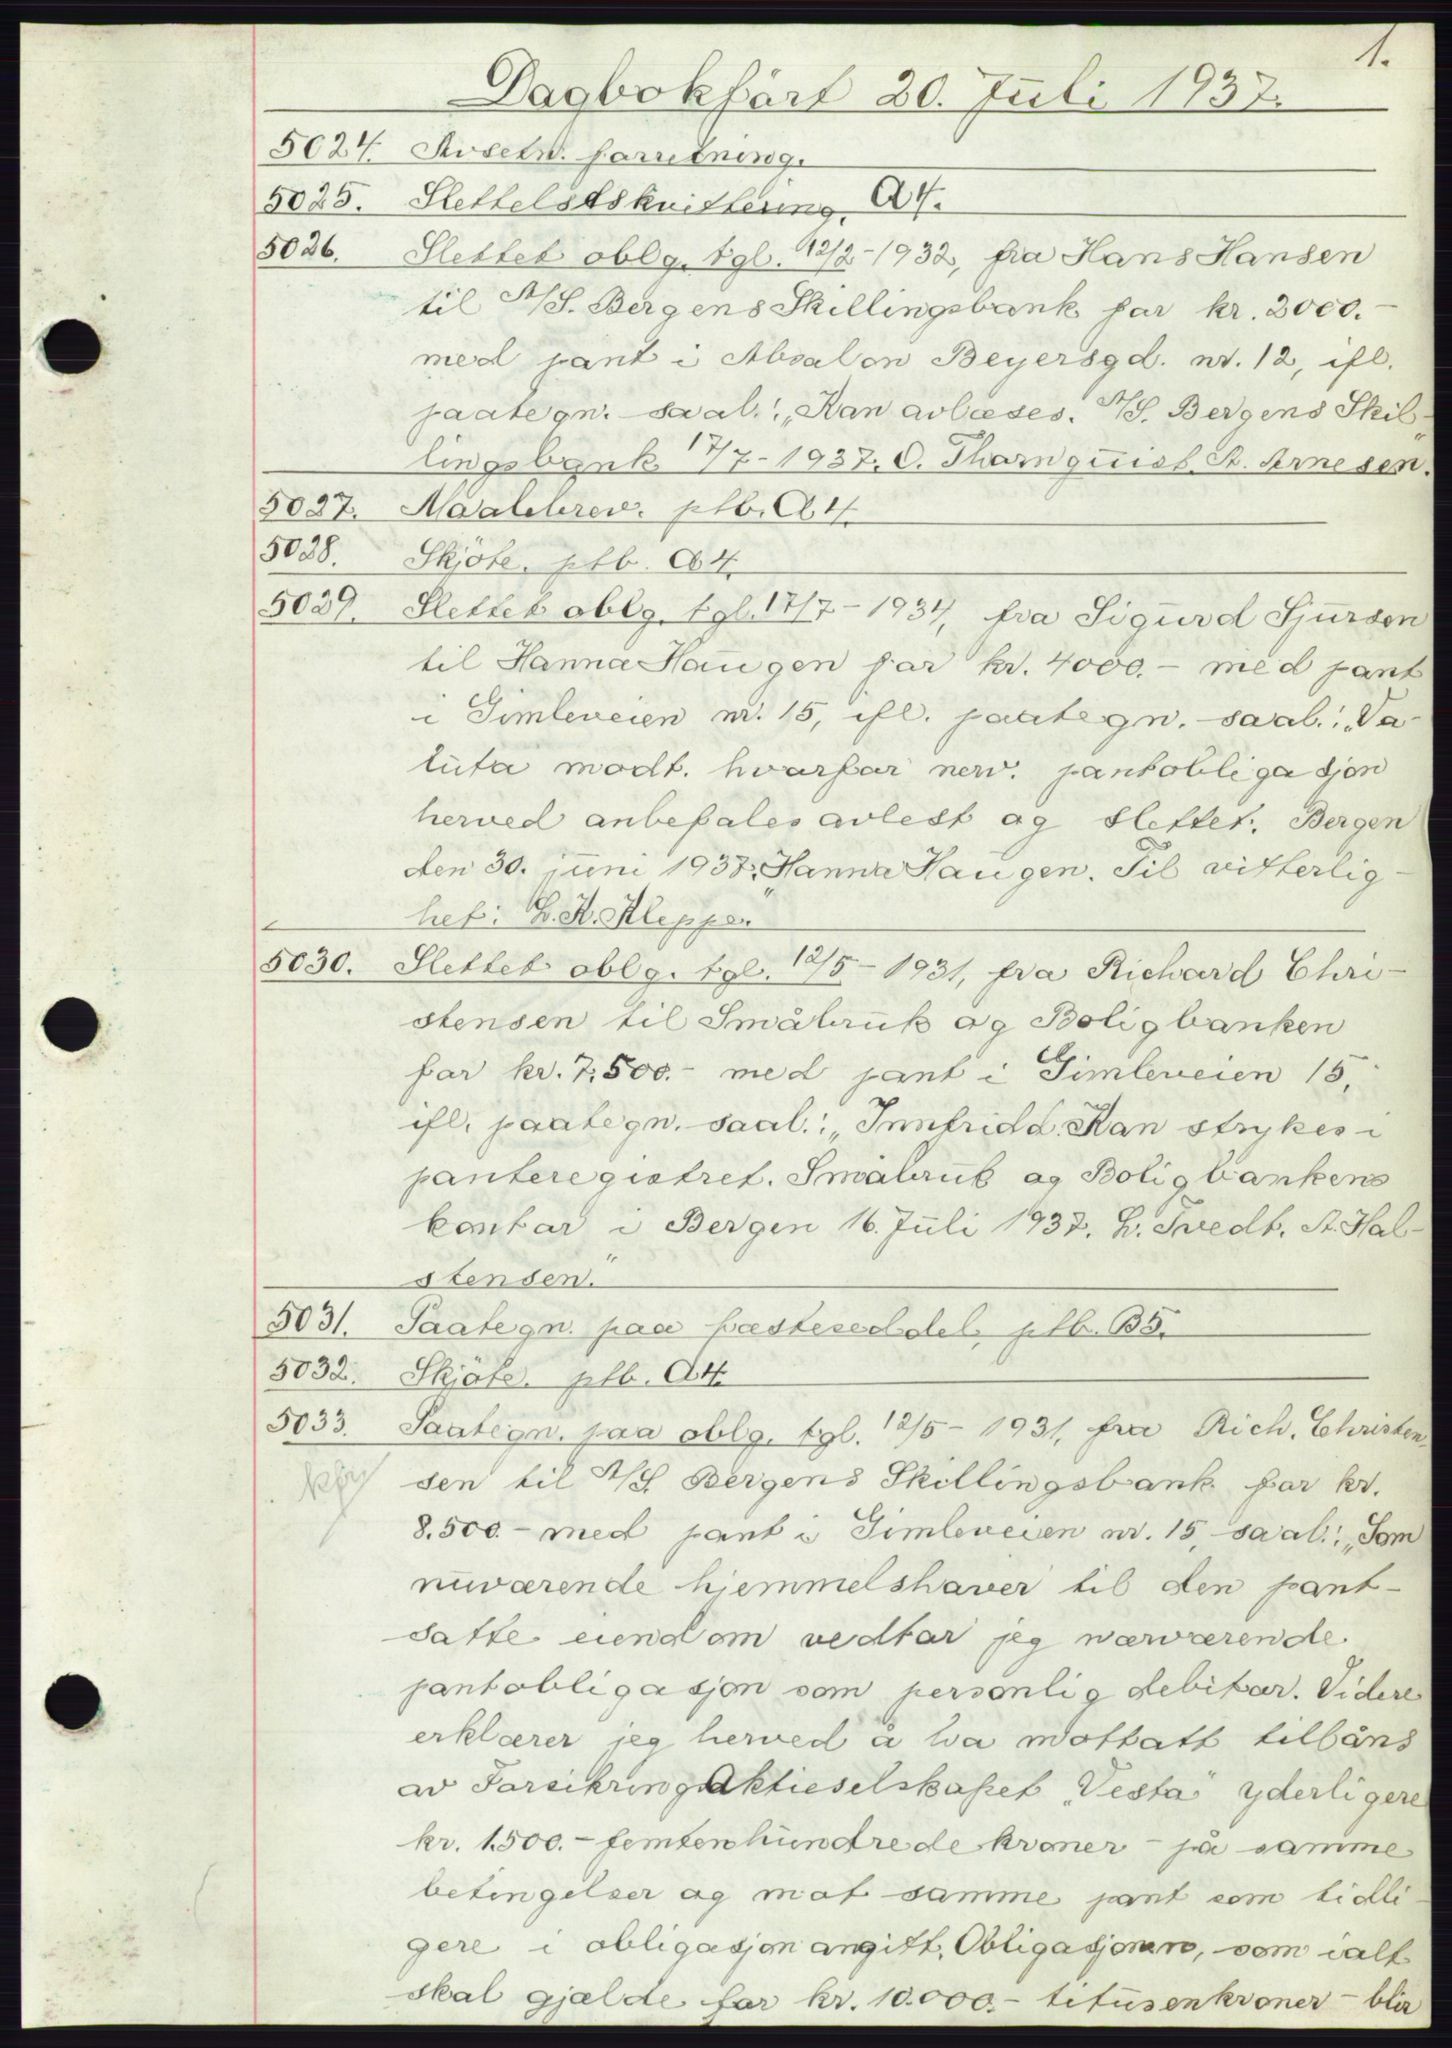 1.
Dagbokført 20. Juli 1937.
5024. Avsetn. forretning.
5025. Slettelseskvittering, A4.
5026. Slettet oblg. tgl. 12/2-1932, fra Hans Hansen
til A/S. Bergens Skillingsbank for kr. 2000.-
med pant i Absalon Beyersgd. nr. 12, ifl.
paategn. saal.: „Kan avlæses. A/S. Bergens Skil-
lingsbank 17/7-1937. O. Thornquist. A. Arnesen."
5027. Maalebrev. ptb. A4.
5028. Skjöte. ptb. A4.
5029. Slettet oblg. tgl. 17/7-1934, fra Sigurd Sjursen
til Hanna Haugen for kr. 4000.- med pant
i Gimleveien nr. 15, ifl. paategn. saal.: „Va-
luta modt. hvorfor nerv. pantobligasjon
herved anbefales avlest og slettet. Bergen
den 30. juni 1937. Hanna Haugen. Til vitterlig-
het: L. H. Kleppe."
5030. Slettet oblg. tgl. 12/5-1931, fra Richard Chri-
stensen til Småbruk og Boligbanken
for kr. 7.500.- med pant i Gimleveien 15,
ifl. paategn. saal.: „Innfridd. Kan strykes i
panteregistret. Småbruk og Boligbankens
kontor i Bergen 16. Juli 1937. L. Tvedt. A. Hal-
stensen."
5031. Paategn. paa festeseddel, ptb. B5.
5032. Skjöte. ptb. A4.
5033. Paategn. paa oblg. tgl. 12/5-1931, fra Rich. Christen-
sen til A/S. Bergens Skillingsbank for kr.
8.500.- med pant i Gimleveien nr. 15, saal.: „Som
nuværende hjemmelshaver til den pant-
satte eiendom vedtar jeg nærværende
pantobligasjon som personlig debitor. Videre
erklærer jeg herved å ha mottatt tillåns
av ForsikringsAktieselskapet „Vesta" yderligere
kr. 1.500.- femtenhundrede kroner - på samme
betingelser og mot samme pant som tidli-
gere i obligasjon angitt. Obligasjonen, som ialt
skal gjælde for kr. 10.000.- titusenkroner - blir